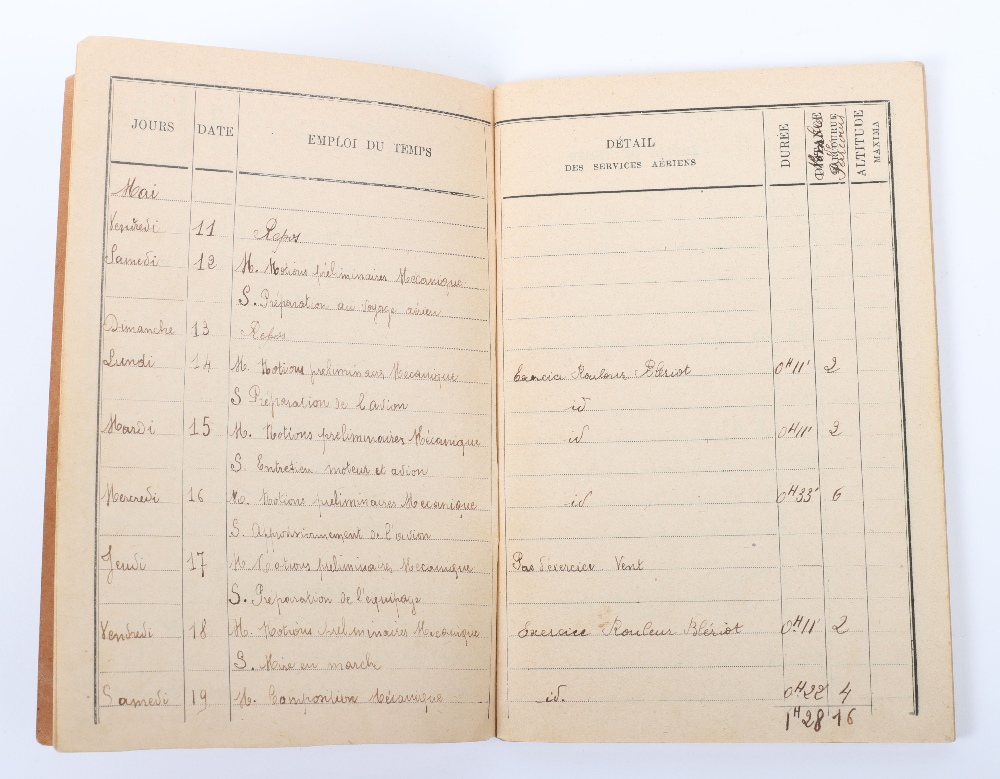 JOURS DATE EMPLOI DU TEMPS
Mai
Vendredi 11 Repos
Samedi 12 M. Notions préliminaires Mecanique
S. Préparation au voyage aérien
Dimanche 13 Repos
Lundi 14 M. Notions preliminaires Mecanique
S Préparation de l'avion
Mardi 15 M. Notions preliminaires Mécanique
S. Entretien moteur et avion
Mercredi 16 M. Notions preliminaires Mecanique
S. Approvisionnement de l'avion
Jeudi 17 M. Notions preliminaires Mecanique
S. Preparation de l'equipage
Vendredi 18 M. Notions preliminaires Mecanique
S. Mise en marche
Samedi 19 M. Composition Mécanique
DÉTAIL
DES SERVICES AÉRIENS
DURÉE
Parcours
ALTITUDE
MAXIMA
Exercice Rouleur Blériot 0H11' 2
id
id 0H11' 2
id 0H33' 6
Pas d'exercice Vent
Exercice Rouleur Blériot 0H11' 2
id. 0H22 4
1H28 16